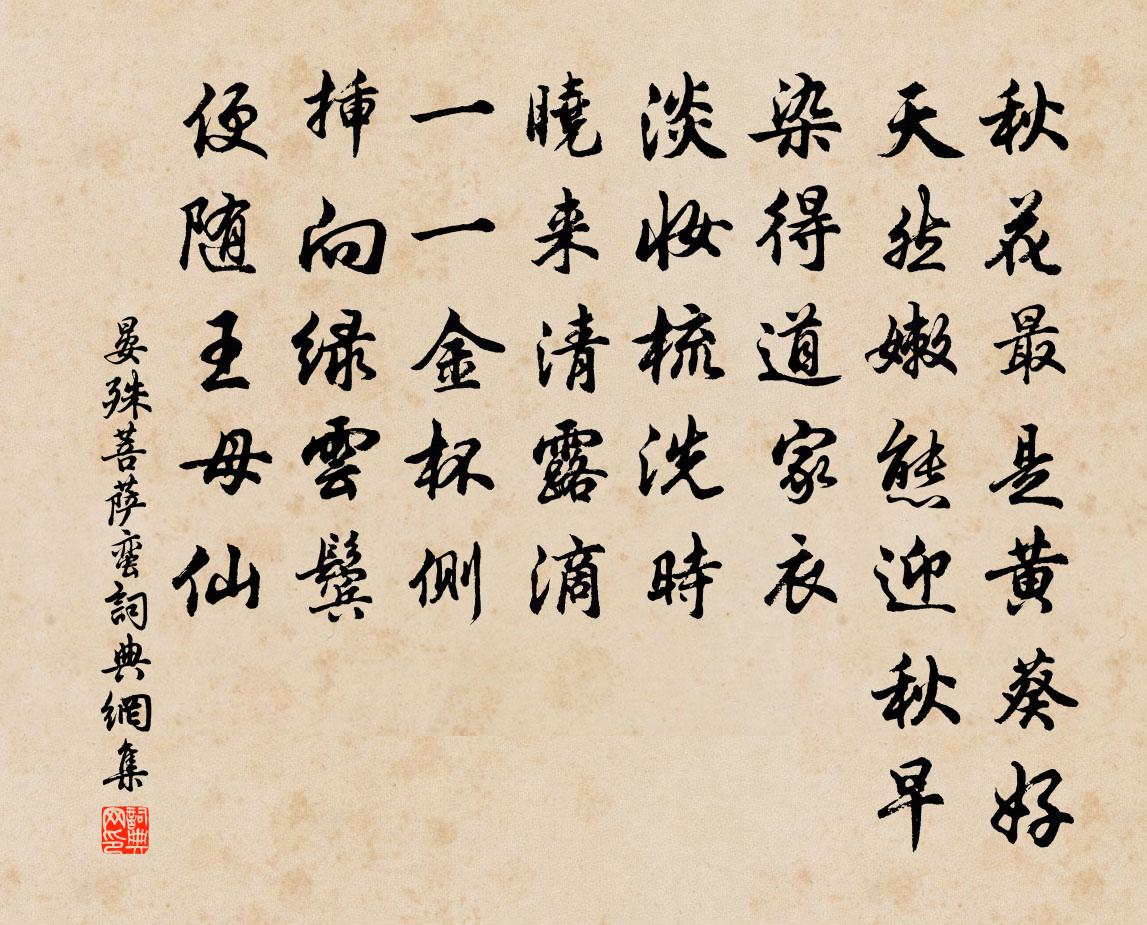 秋花最是黄葵好
天然嫩態迎秋早
染得道家衣
淡妝梳洗時
曉来清露滴
一一金杯側
插向緑雲鬢
便随王母仙
晏殊菩萨蛮詞典網集
詞典网印